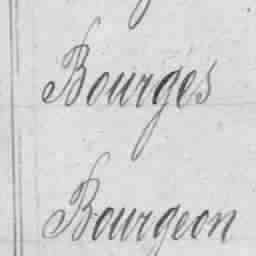 Bourges
Bourgeon